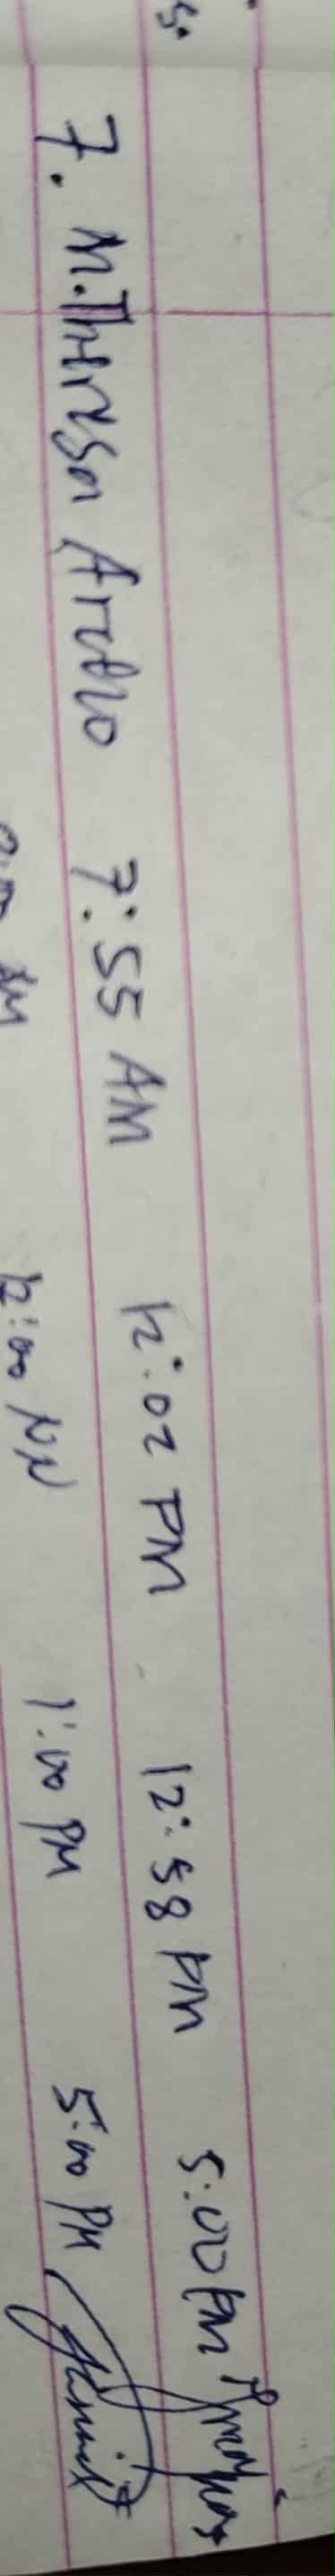 7. M. Theresa Arcebo 7:55 AM 12:02 PM 12:58 PM 5:00 PM
12:00 NN 1:00 PM 5:00 PM